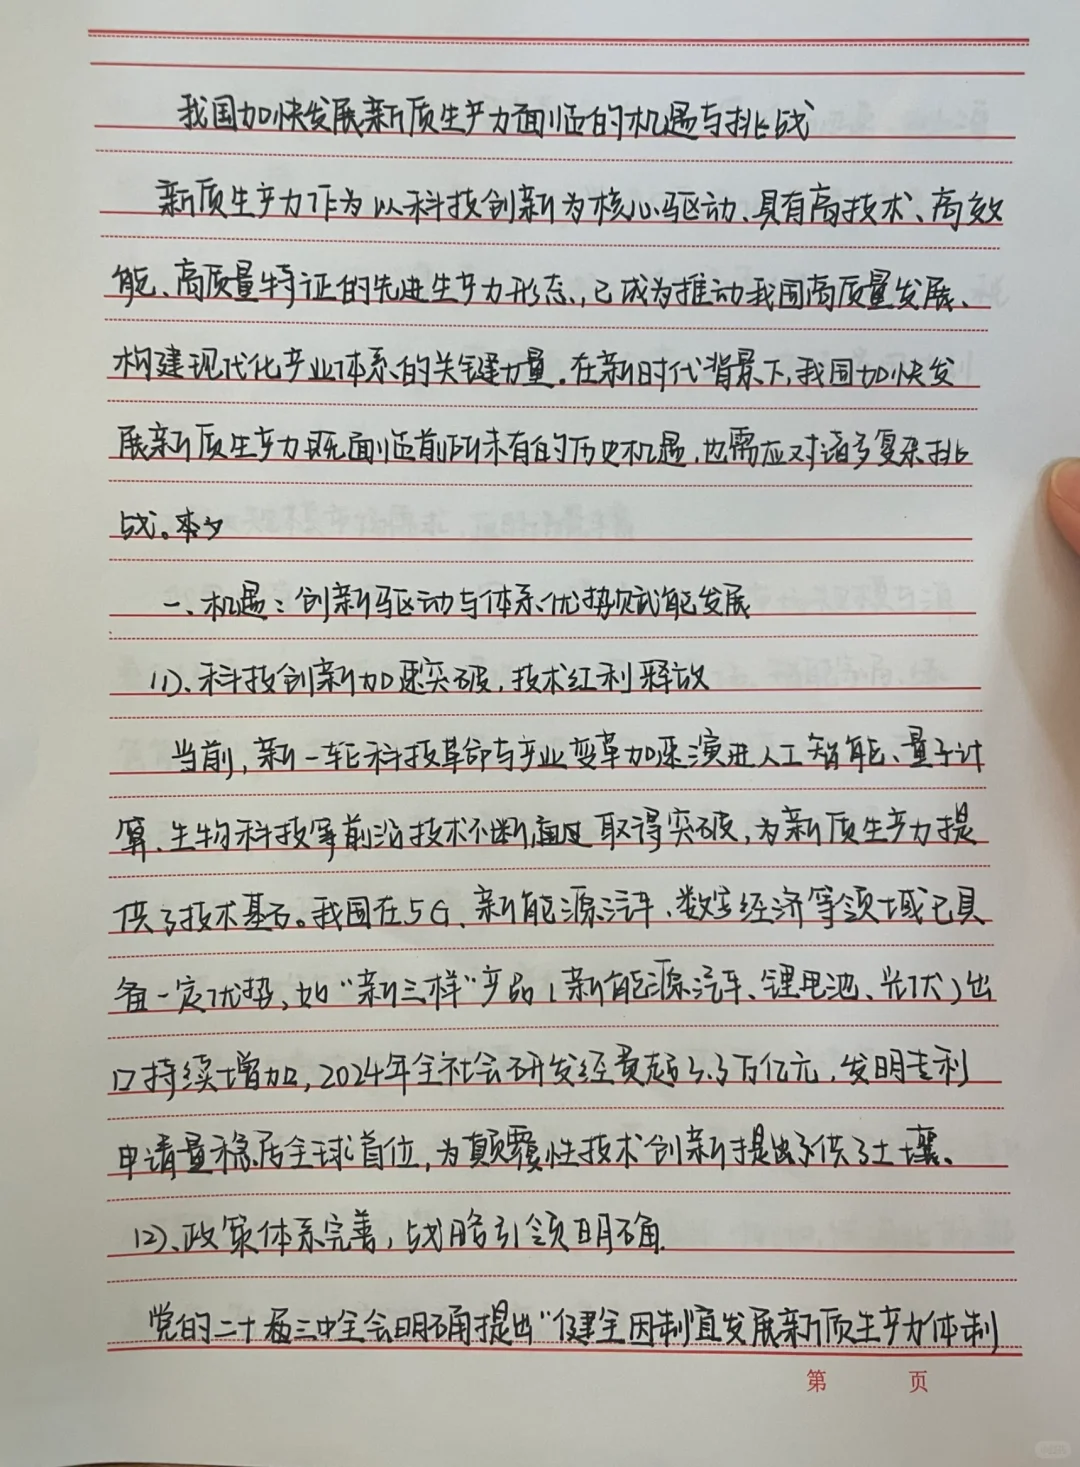 我国加快发展新质生产力面临的机遇与挑战
新质生产力作为以科技创新为核心驱动、具有高技术、高效
能、高质量特征的先进生产力形态，已成为推动我国高质量发展、
构建现代化产业体系的关键力量。在新时代背景下，我国加快发
展新质生产力既面临前所未有的历史机遇，也需应对诸多复杂挑
战。本文
一、机遇：创新驱动与体系优势赋能发展
（1）、科技创新加速突破，技术红利释放
当前，新一轮科技革命与产业变革加速演进人工智能、量子计
算、生物科技等前沿技术不断通过取得突破，为新质生产力提
供了技术基石。我国在5G、新能源汽车、数字经济等领域已具
备一定优势，如“新三样”产品（新能源汽车、锂电池、光伏）出
口持续增加，2024年全社会研发经费超3.3万亿元，发明专利
申请量稳居全球首位，为颠覆性技术创新提供了土壤、
（2）、政策体系完善，战略引领明确
党的二十届三中全会明确提出“健全因制宜发展新质生产力体制
第 页